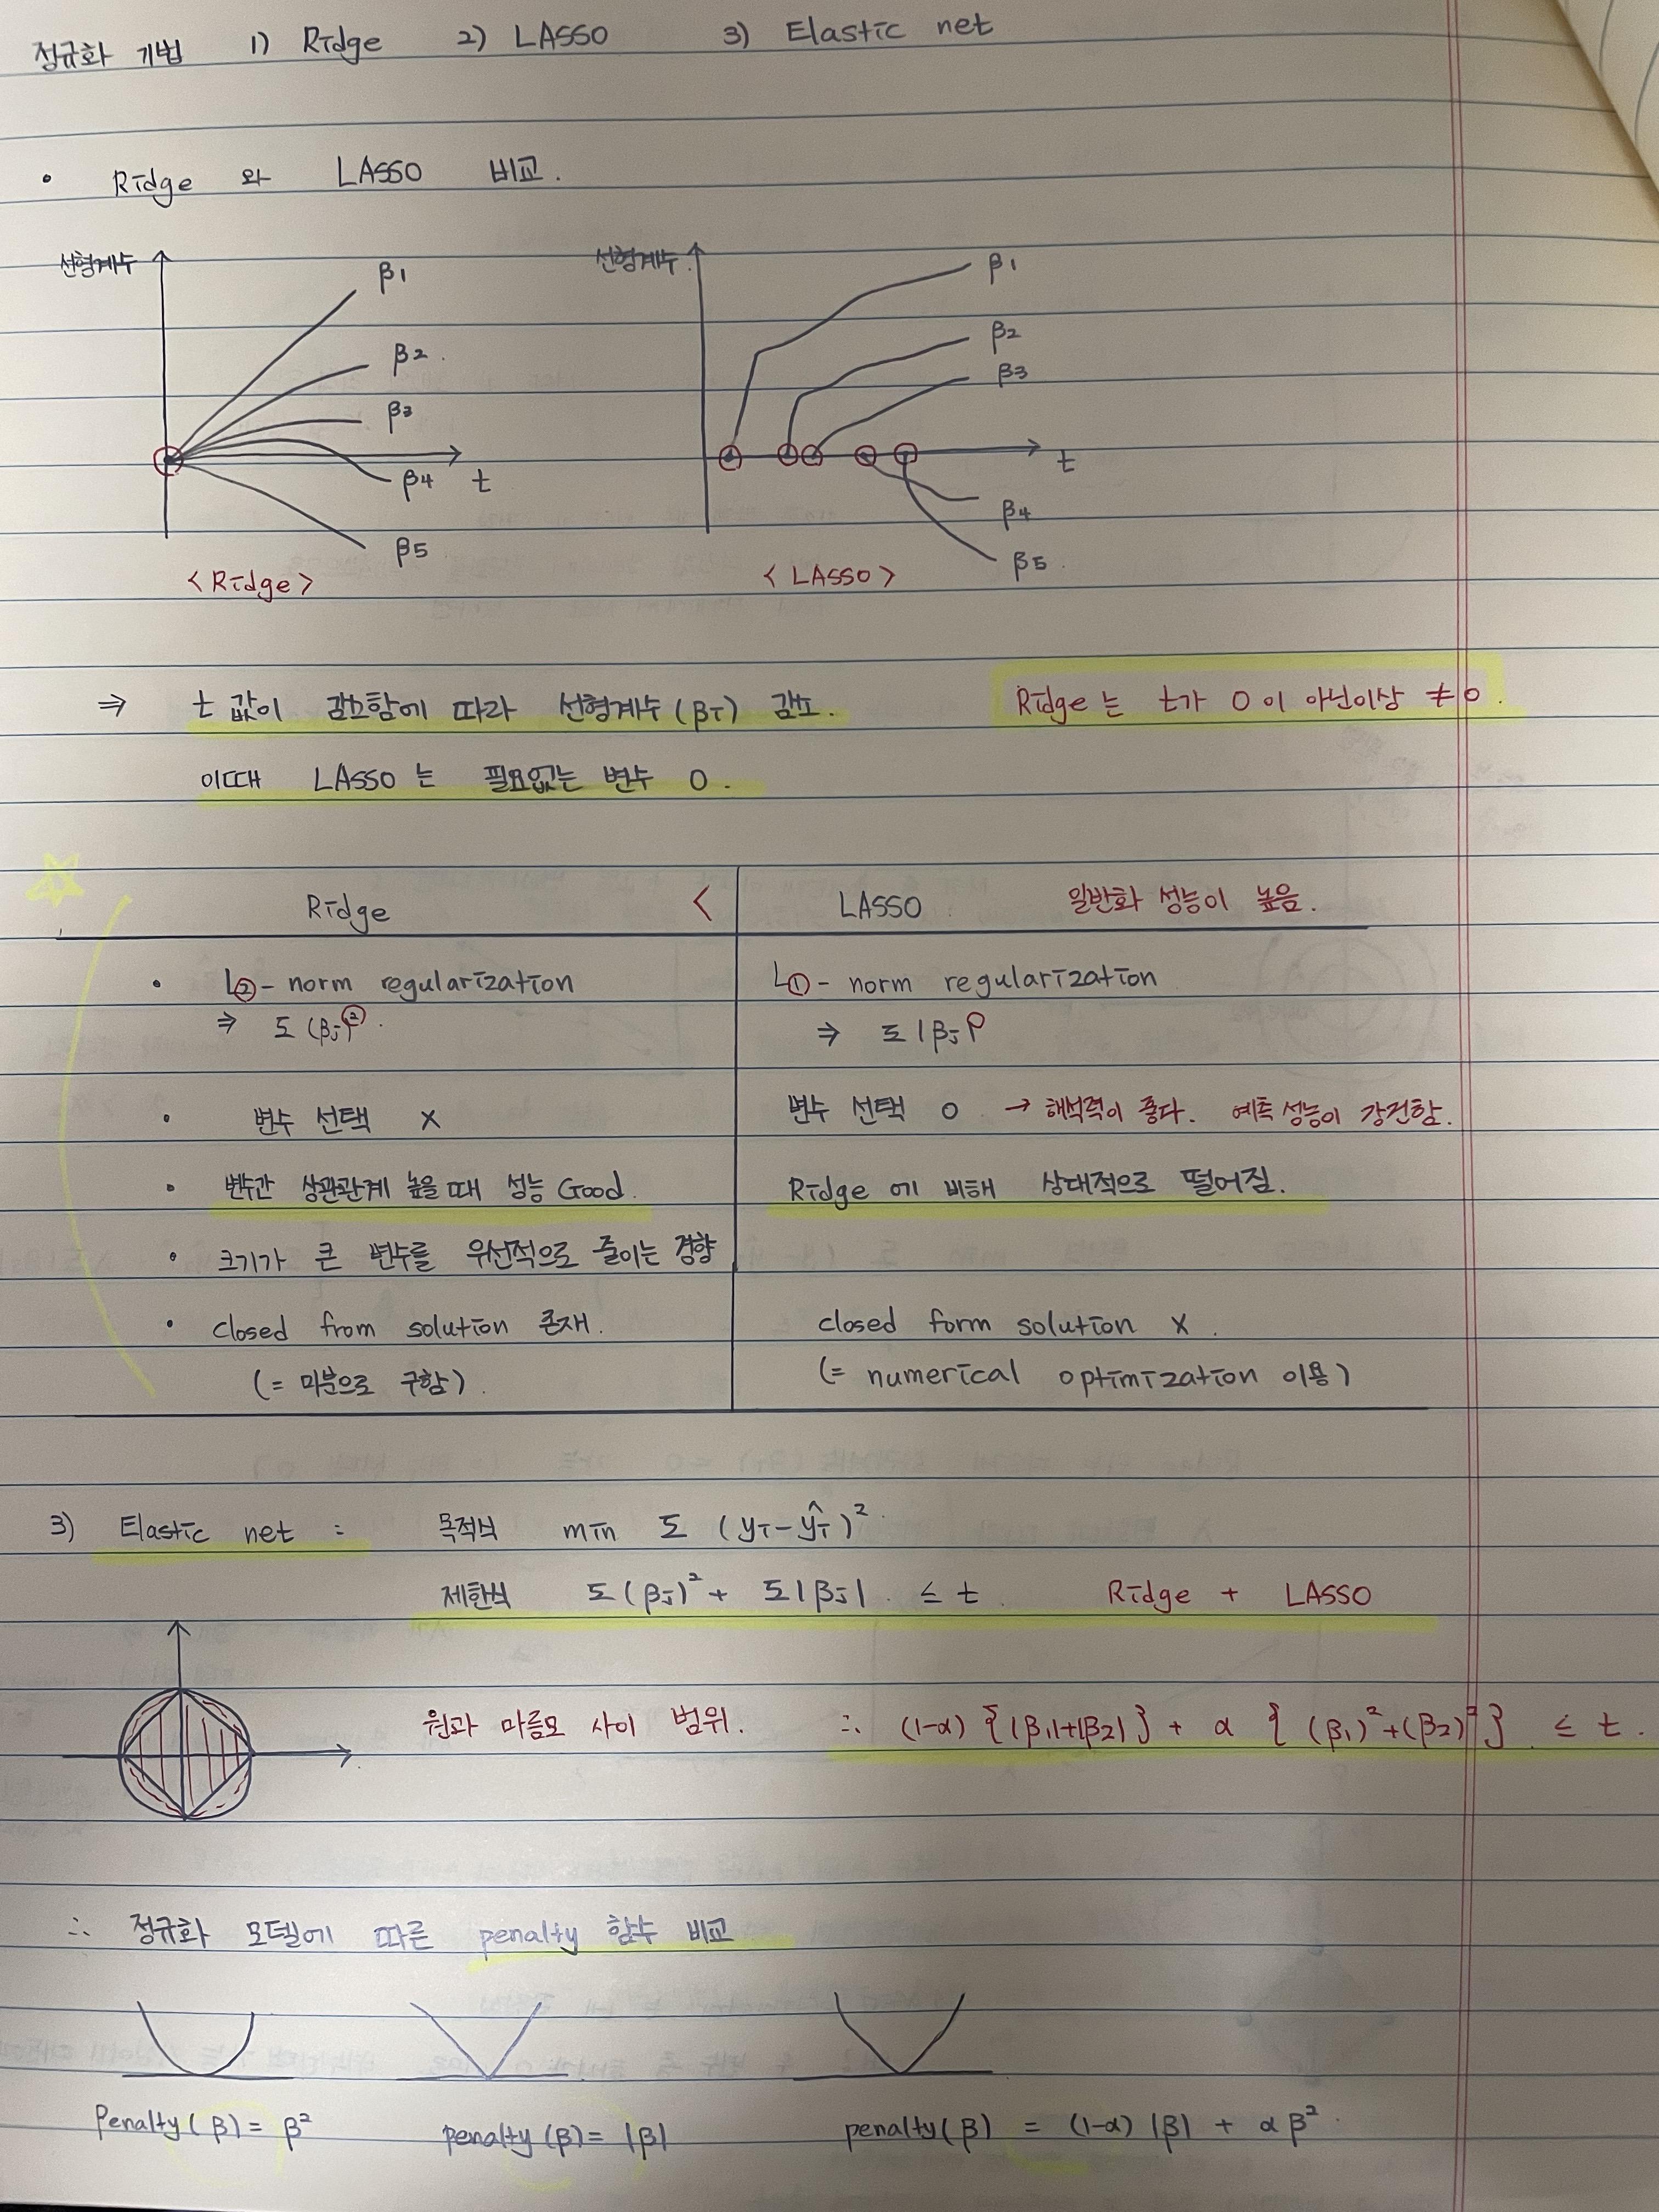 정규화 기법 1) Ridge 2) LASSO 3) Elastic net
• Ridge 와 LASSO 비교.
선형계수 β1 β2. β3 β4 t β5
<Ridge>
선형계수 β1 β2 β3 t β4 β5.
<LASSO>
⇒ t 값이 감소함에 따라 선형계수(βi) 감소. Ridge는 t가 0이 아닌이상 ≠0.
이때 LASSO는 필요없는 변수 0.
Ridge < LASSO 일반화 성능이 높음.
• L②-norm regularization L①-norm regularization
⇒ Σ(βj)² ⇒ Σ|βj|
• 변수 선택 X 변수 선택 O → 해석력이 좋다. 예측 성능이 강건함.
• 변수간 상관관계 높을 때 성능 Good. Ridge 에 비해 상대적으로 떨어짐.
• 크기가 큰 변수를 우선적으로 줄이는 경향
• closed from solution 존재. closed form solution X.
(= 미분으로 구함). (= numerical optimization 이용)
3) Elastic net : 목적식 min Σ (yi-ŷi)²
제한식 Σ(βj)² + Σ|βj| ≤ t Ridge + LASSO
원과 마름모 사이 범위. ∴ (1-α) {|β1|+|β2|} + α {(β1)²+(β2)²} ≤ t.
∴ 정규화 모델에 따른 penalty 함수 비교
Penalty(β) = β² penalty(β) = |β| penalty(β) = (1-α)|β| + αβ².